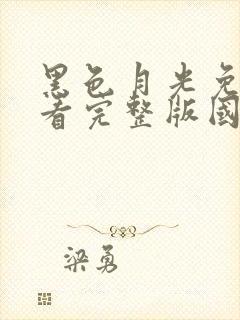 黑色月光免
看完整版國
梁勇